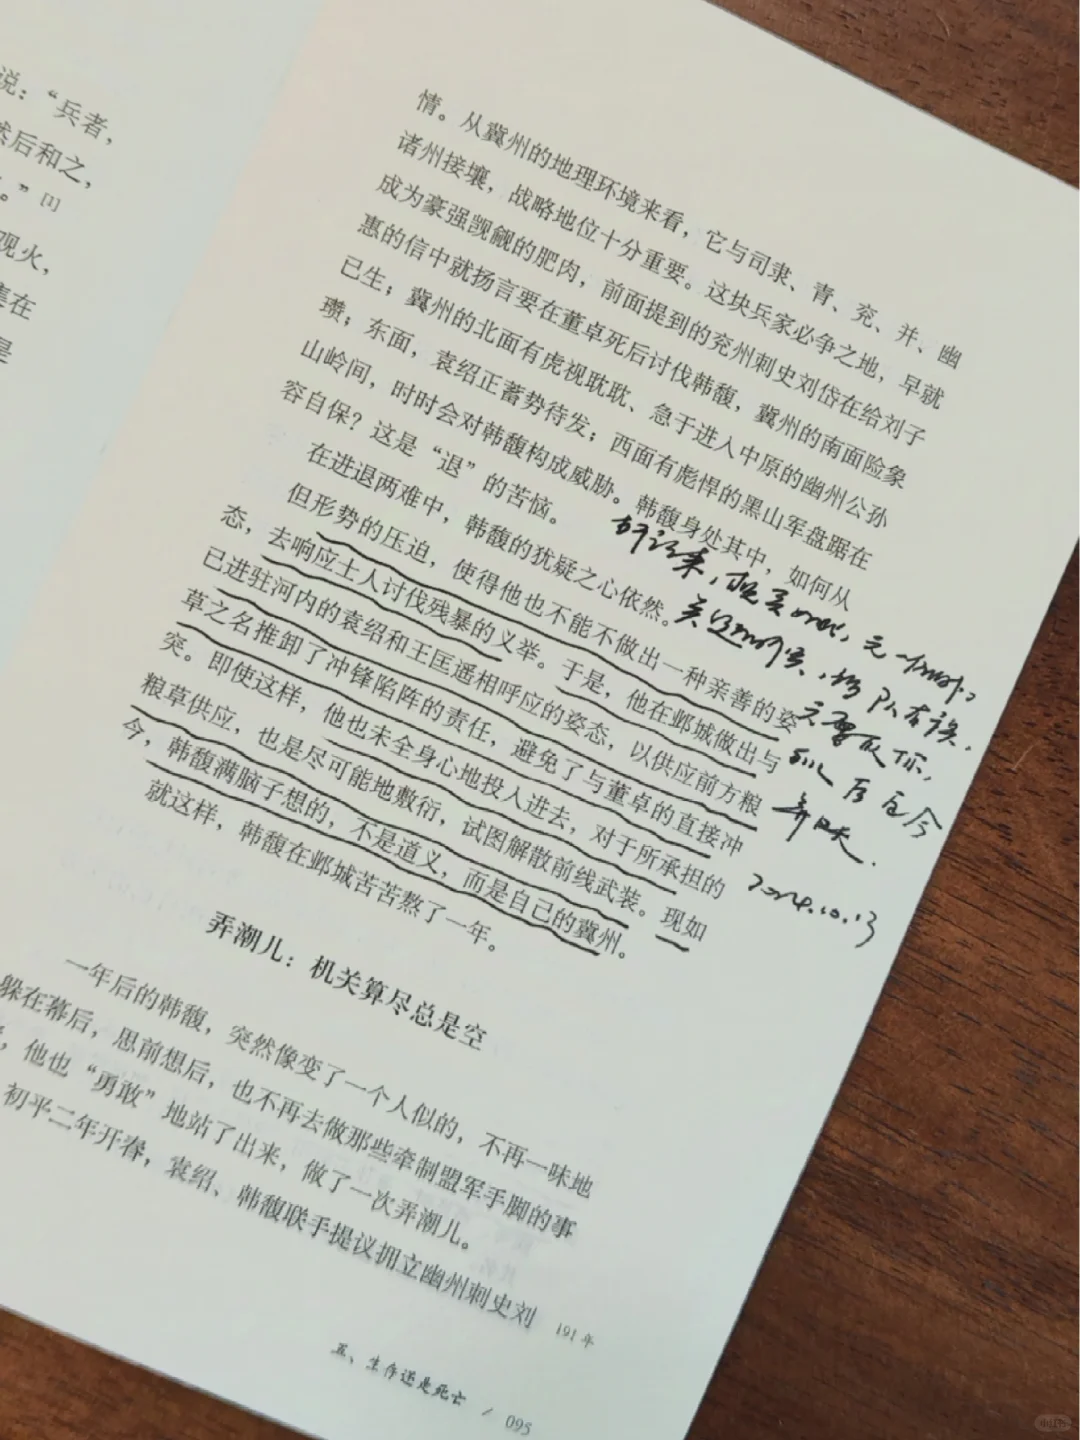 说：“兵者，
然后和之，
。”[1]
观火，
集在
是
情。从冀州的地理环境来看，它与司隶、青、兖、并、幽
诸州接壤，战略地位十分重要。这块兵家必争之地，早就
成为豪强觊觎的肥肉，前面提到的兖州刺史刘岱在给刘子
惠的信中就扬言要在董卓死后讨伐韩馥，冀州的南面险象
已生；冀州的北面有虎视眈眈、急于进入中原的幽州公孙
瓒；东面，袁绍正蓄势待发；西面有彪悍的黑山军盘踞在
山岭间，时时会对韩馥构成威胁。韩馥身处其中，如何从
容自保？这是“退”的苦恼。
在进退两难中，韩馥的犹疑之心依然。
但形势的压迫，使得他也不能不做出一种亲善的姿
态，去响应士人讨伐残暴的义举。于是，他在邺城做出与
已进驻河内的袁绍和王匡遥相呼应的姿态，以供应前方粮
草之名推卸了冲锋陷阵的责任，避免了与董卓的直接冲
突。即使这样，他也未全身心地投入进去，对于所承担的
粮草供应，也是尽可能地敷衍，试图解散前线武装。现如
今，韩馥满脑子想的，不是道义，而是自己的冀州。
就这样，韩馥在邺城苦苦熬了一年。
2024.10.13
弄潮儿：机关算尽总是空
一年后的韩馥，突然像变了一个人似的，不再一味地
躲在幕后，思前想后，也不再去做那些牵制盟军手脚的事
，他也“勇敢”地站了出来，做了一次弄潮儿。
初平二年开春，袁绍、韩馥联手提议拥立幽州刺史刘
191年
五、生存还是死亡 / 095